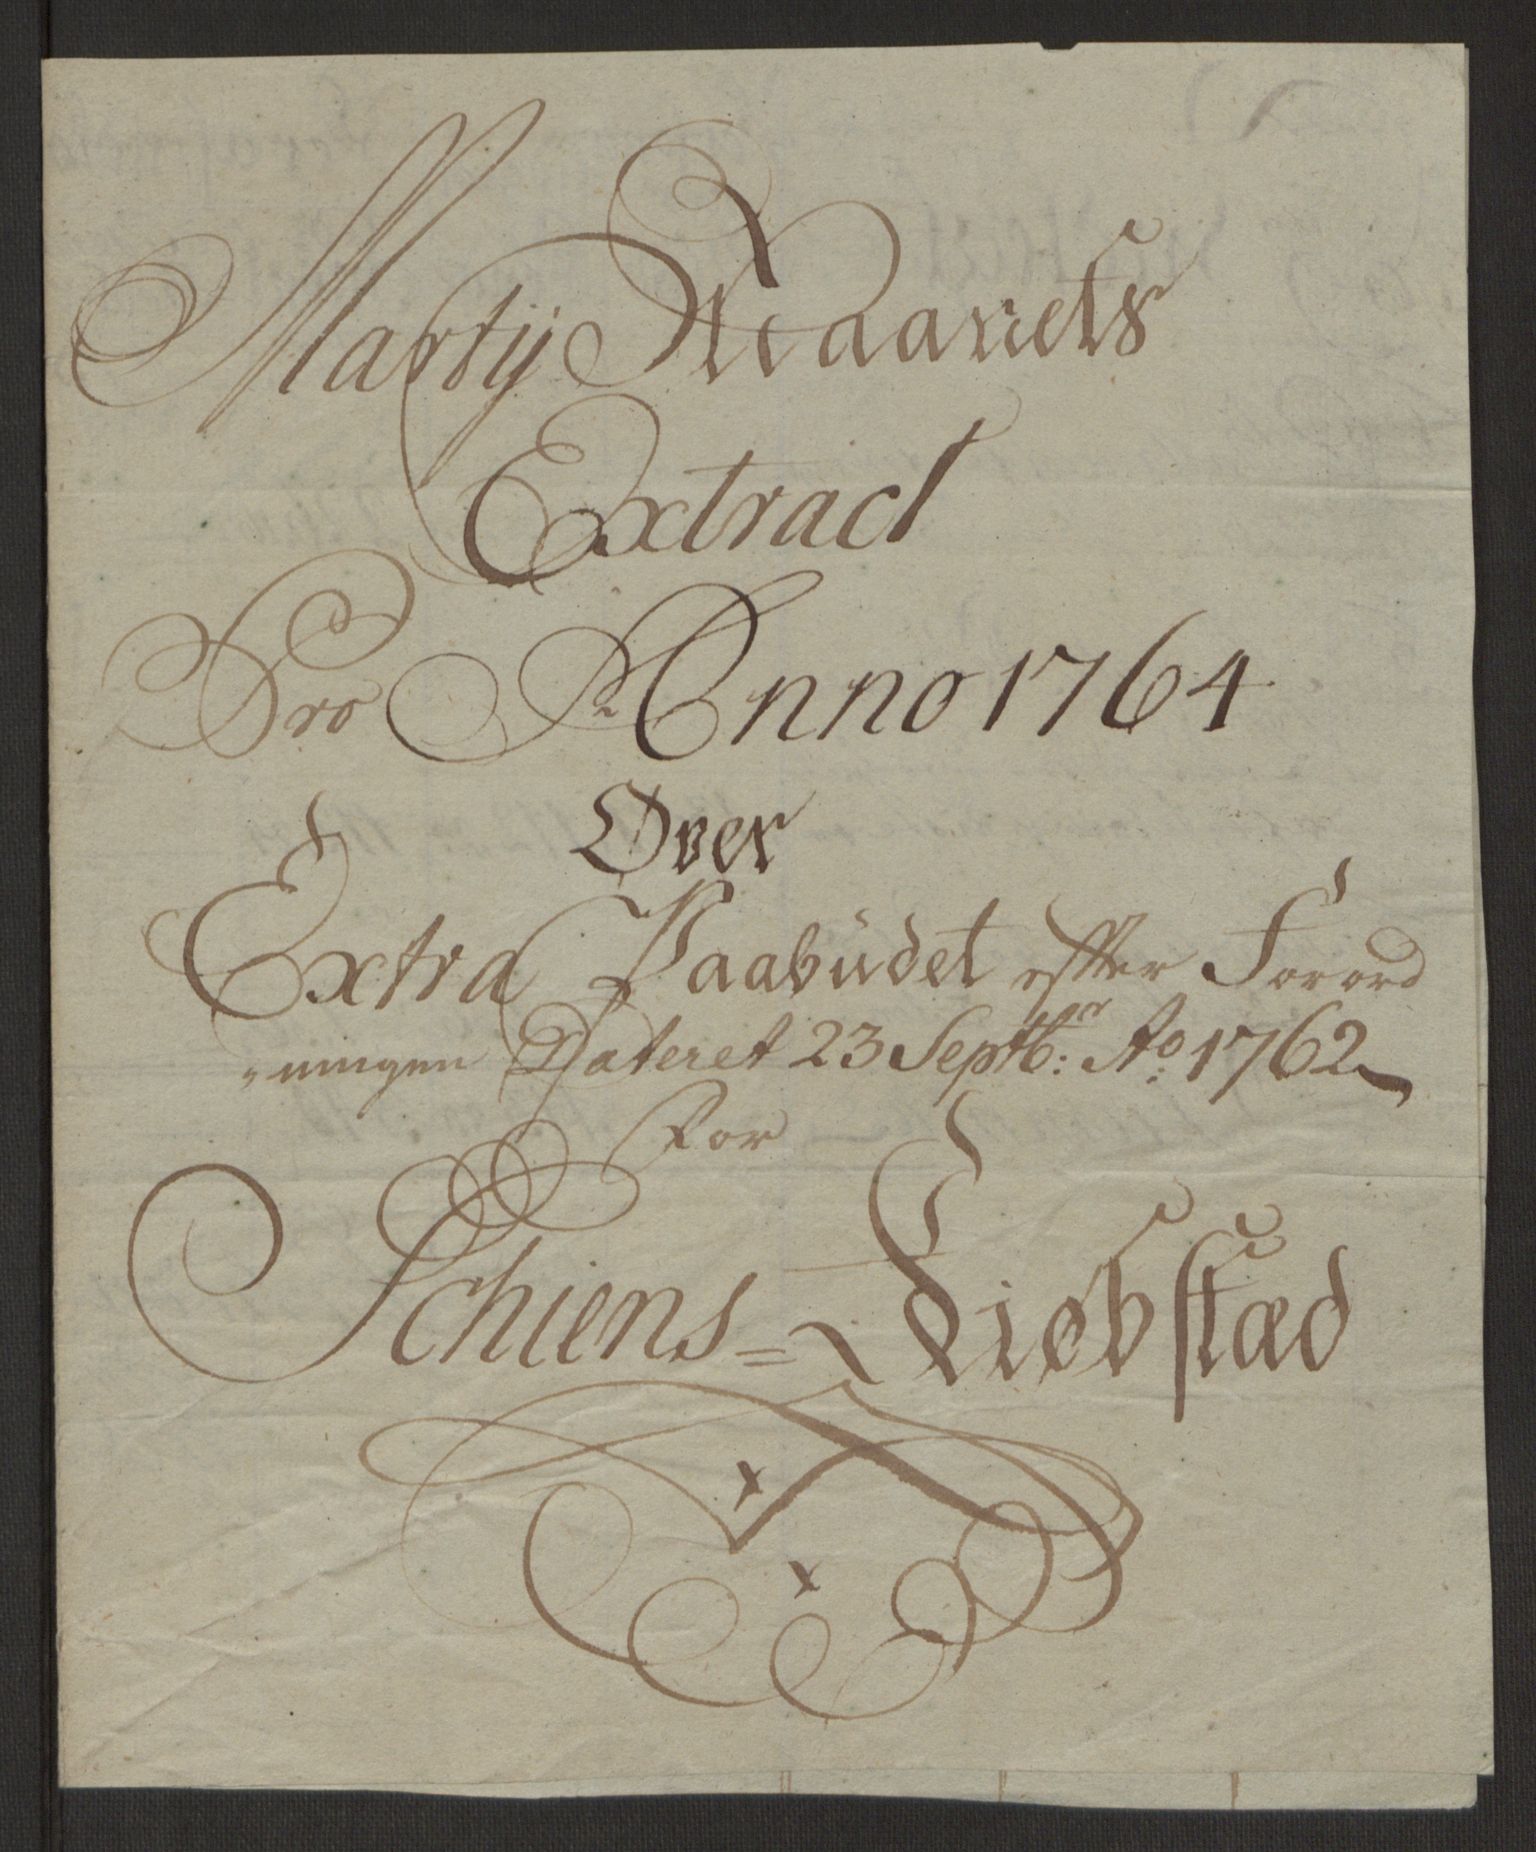 Martij Maanets
Extract
Pro Anno 1764
Over
Extra Paabüdet efter Forord
„ningen Dateret 23 Septbr: Ao: 1762
For
Schiens = Kiøbstæd